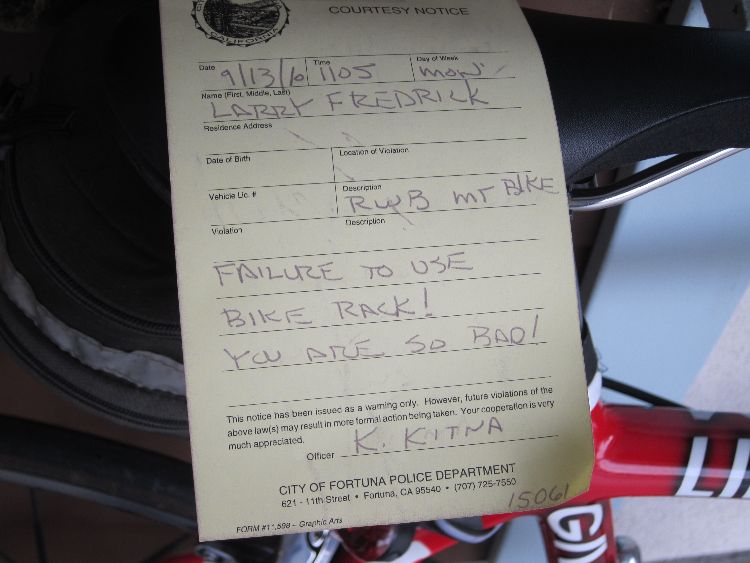 COURTESY NOTICE
CALIFORNIA
Date 9/13/10 Time 1105 Day of Week MON
Name (First, Middle, Last)
LARRY FREDRICK
Residence Address
Date of Birth Location of Violation
Vehicle Lic. # Description
RWB MT BIKE
Violation Description
FAILURE TO USE
BIKE RACK!
YOU ARE SO BAD!
This notice has been issued as a warning only. However, future violations of the
above law(s) may result in more formal action being taken. Your cooperation is very
much appreciated.
Officer K. KITNA
CITY OF FORTUNA POLICE DEPARTMENT
621 - 11th Street • Fortuna, CA 95540 • (707) 725-7550
15061
FORM #11,598 - Graphic Arts